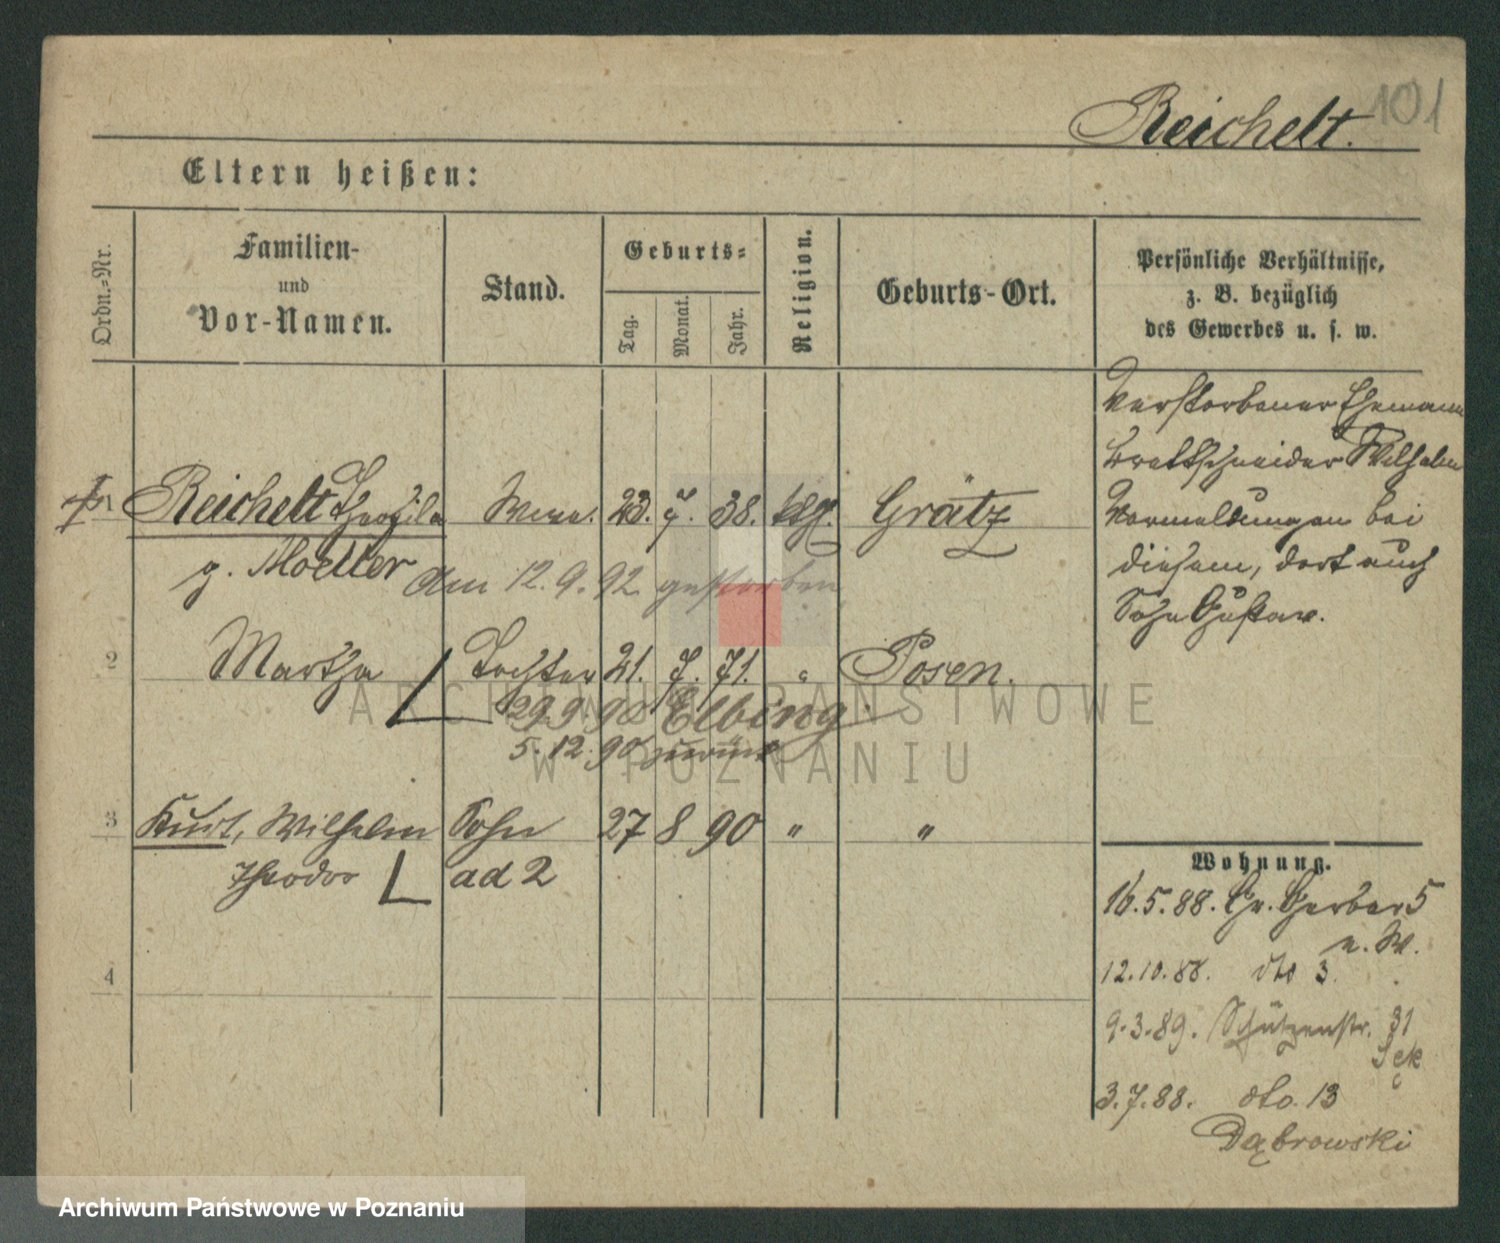 101
Reichelt.
Eltern heißen:
Ordn.-Nr.
Familien-
und
Vor-Namen.
Stand.
Geburts-
Tag.
Monat.
Jahr.
Religion.
Geburts-Ort.
Persönliche Verhältnisse,
z. B. bezüglich
des Gewerbes u. s. w.
Verstorbener Ehemann
Brettschneider Wilhelm
Vormeldungen bei
diesem, dort auch
Sohn Gustav.
1 Reichelt Theophila Wwe. 23. 7. 38. ktl. Grätz
g. Moeller am 12.9.92 gestorben
2 Martha Tochter 21. 7. 71. " Posen.
29.9.90 Elbing
5.12.90 zurück
3 Kurt, Wilhelm Sohn 27 8 90 " "
Theodor ad 2
4
Wohnung.
16.5.88. Gr. Gerber 5
b. W.
12.10.88. dto 3.
9.3.89. Schützenstr. 31
3.7.88. dto. 13
Dąbrowski
ARCHIWUM PAŃSTWOWE
W POZNANIU
Archiwum Państwowe w Poznaniu